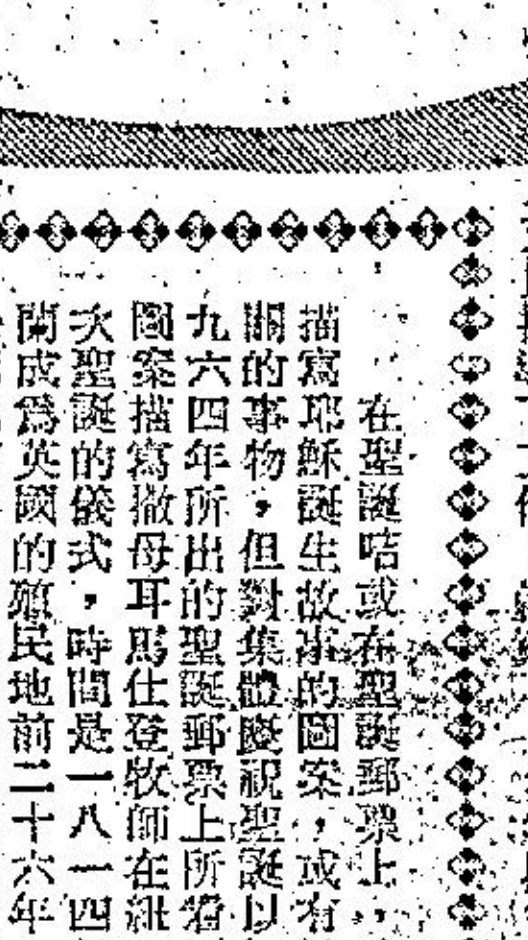 在聖誕咭或在聖誕郵票上，
描寫耶穌誕生故事的圖案，或有
關的事物，但對集體慶祝聖誕以
九六四年所出的聖誕郵票上所
圖案描寫撒母耳馬仕登牧師在紐
次聖誕的儀式，時間是一八一四
蘭成爲英國的殖民地前二十六年